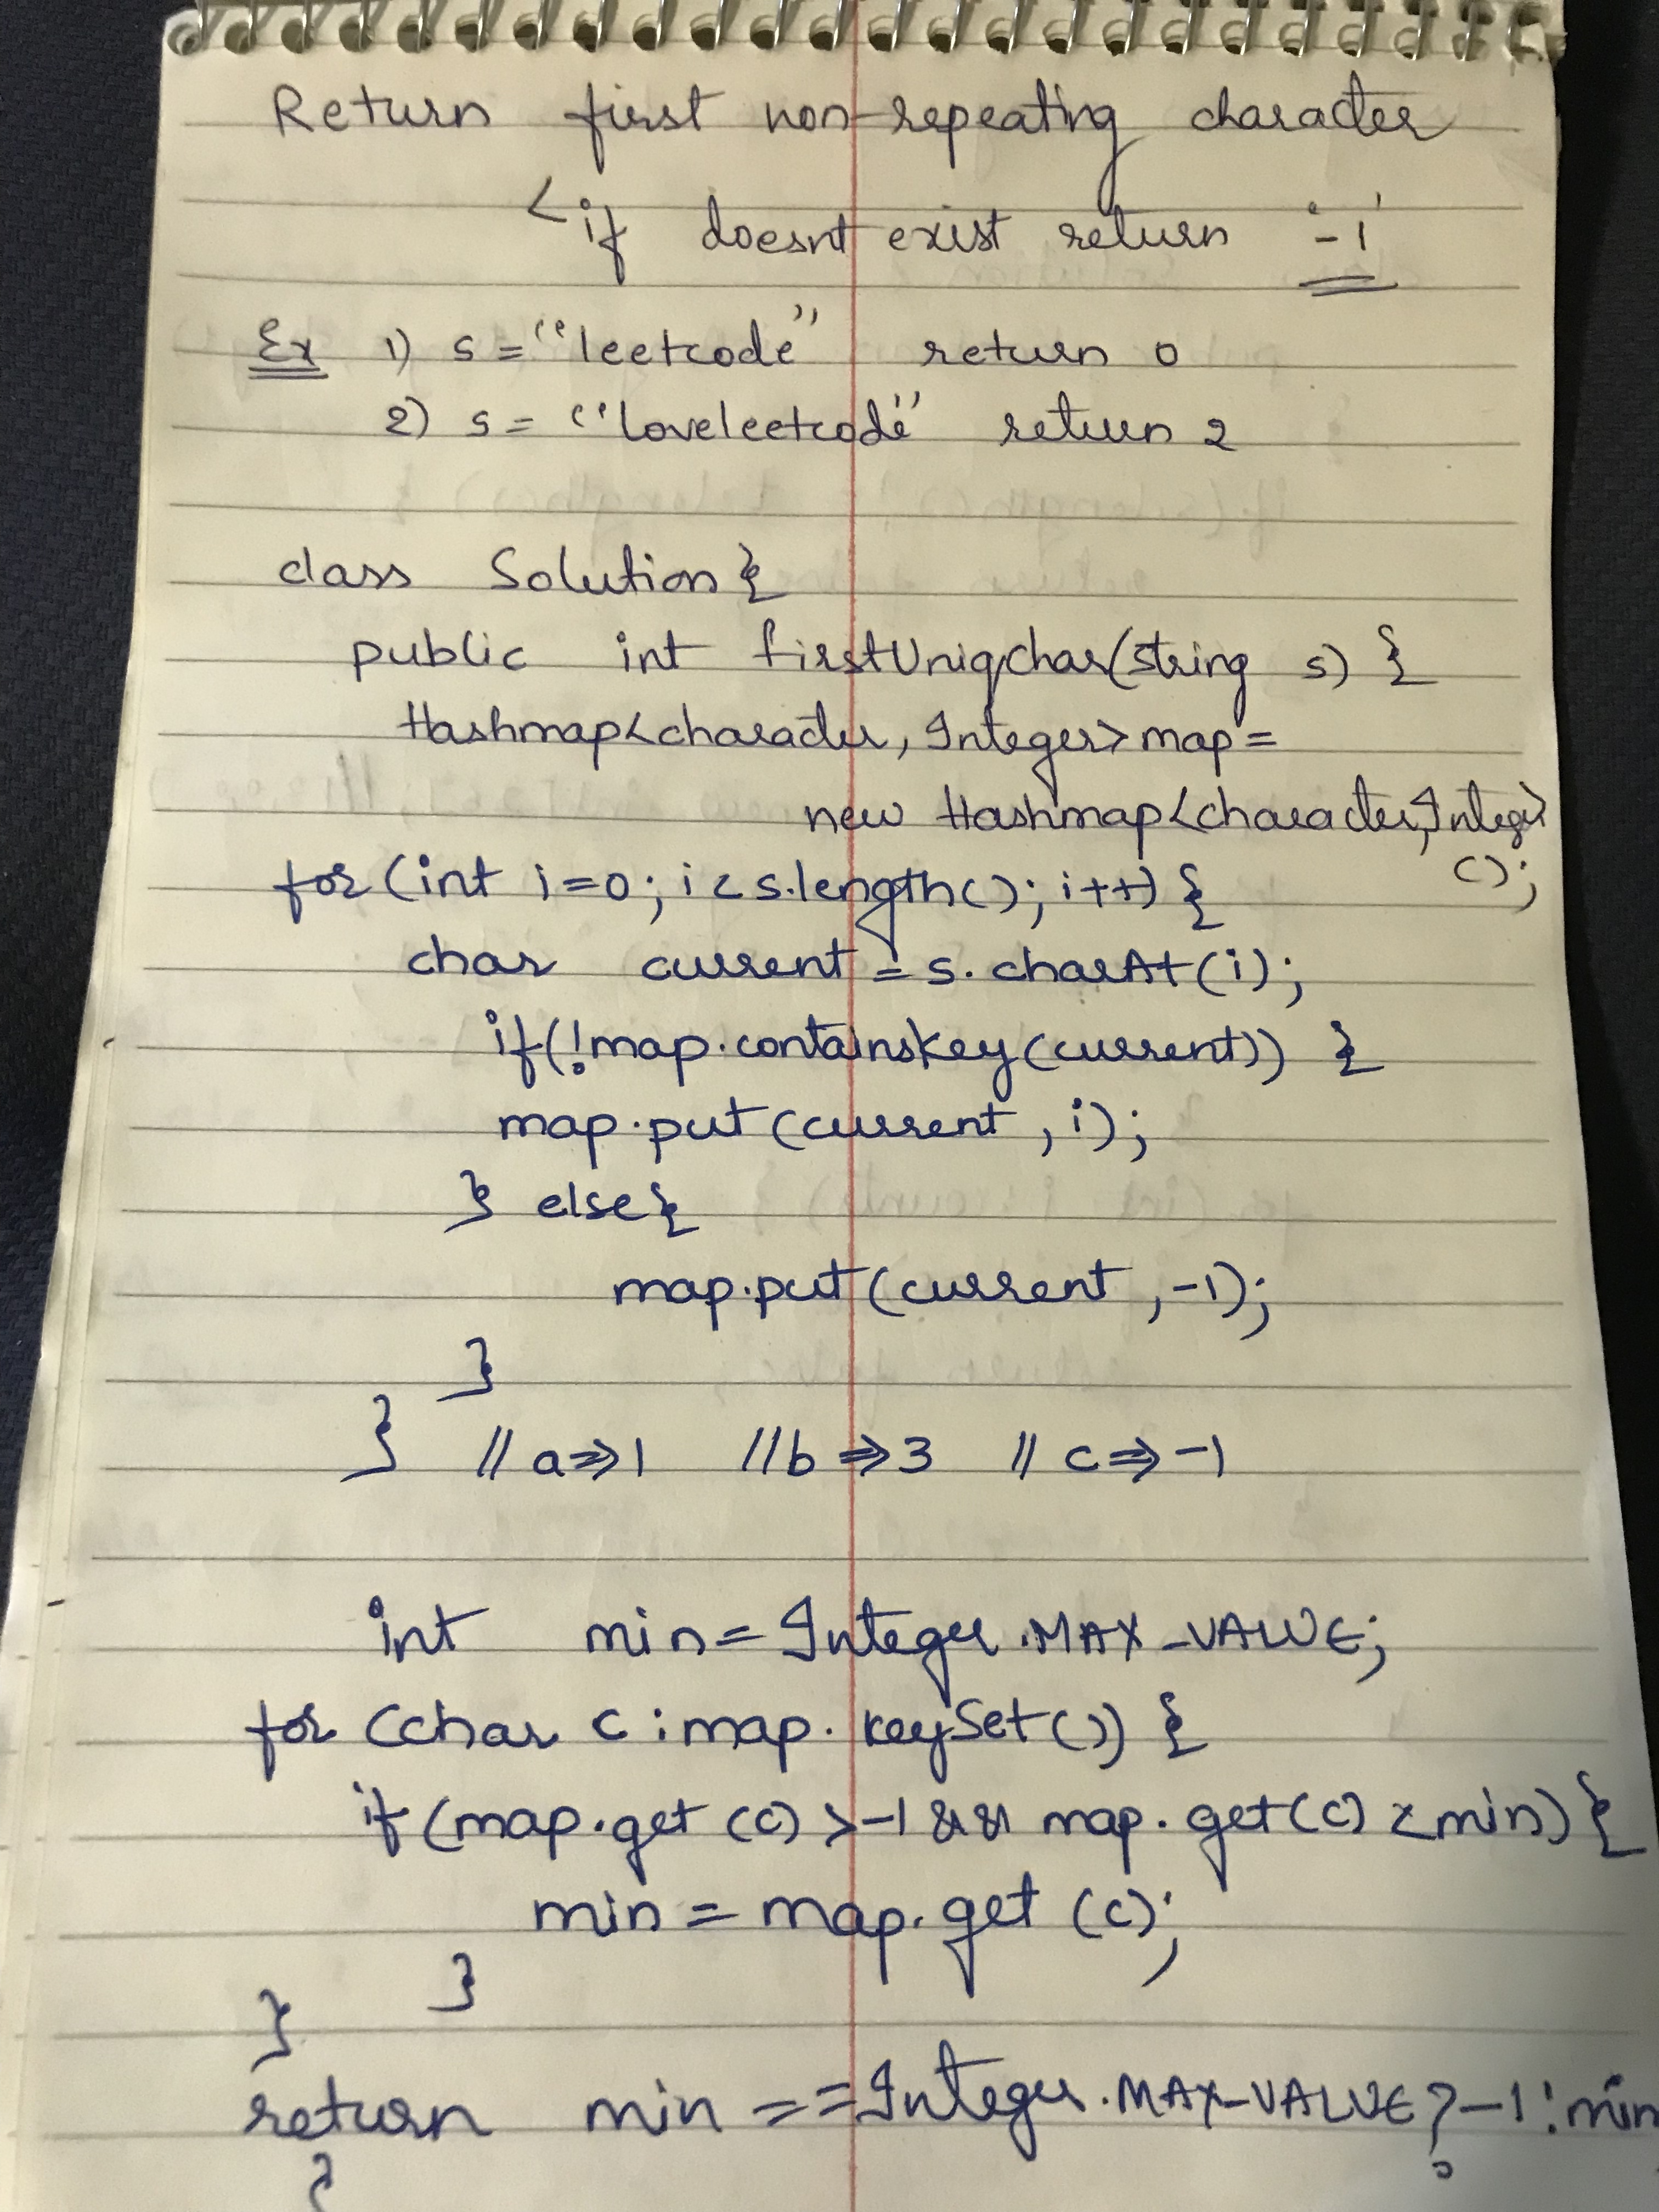 Return first non-repeating character
<if doesnt exist return '-1'
Ex 1) s = "leetcode" return 0
2) s = "loveleetcode" return 2
class Solution{
public int firstUniqchar(string s) {
Hashmap<character, Integer> map =
new Hashmap<character, Integer>
();
for (int i=0; i<s.length(); i++) {
char current = s.charAt(i);
if(!map.containskey(current)) {
map.put(current, i);
} else{
map.put(current, -1);
}
} // a⇒1 // b⇒3 // c⇒-1
int min = Integer.MAX_VALUE;
for (char c : map.keySet()) {
if (map.get(c) >-1 && map.get(c) <min) {
min = map.get(c);
}
}
return min == Integer.MAX_VALUE? -1 : min
}